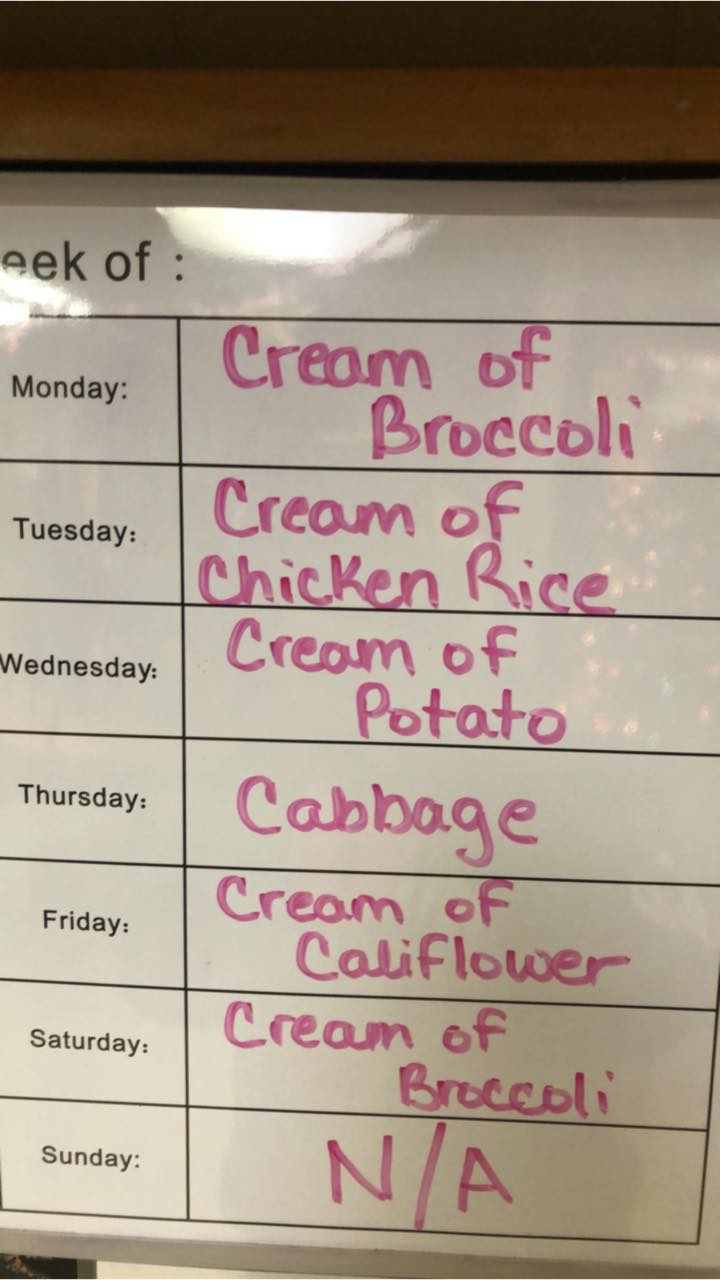 eek of :
Monday: Cream of
Broccoli
Tuesday: Cream of
Chicken Rice
Wednesday: Cream of
Potato
Thursday: Cabbage
Friday: Cream of
Califlower
Saturday: Cream of
Broccoli
Sunday: N/A